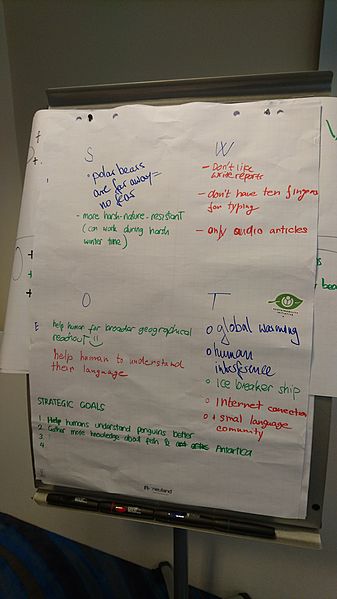 S
• polar bears
are far away =
no fear
- more harsh-nature-resistant
(can work during harsh
winter time)
W
- Don't like
write reports
- don't have ten fingers
for typing
- only audio articles
O
help human for broader geographical
readout !!
help human to understand
their language
T
o global warming
o human
interference
o ice breaker ship
o Internet conection
o small language
comunity
STRATEGIC GOALS
1. Help humans understand penguins better
2. Gather more knowledge about fish & Antarctica
3.
4.
neuland